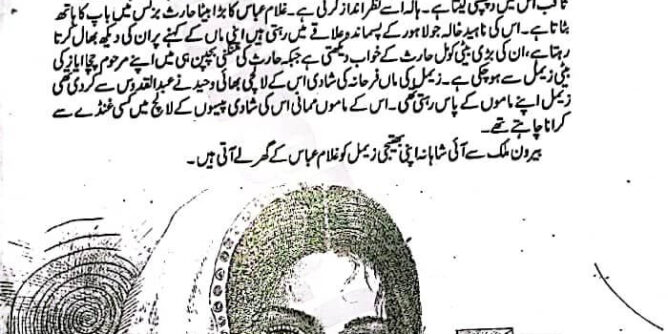 ثاقب اس میں دلچسپی لیتا ہے۔ ہالہ اسے نظر انداز کرتی ہے۔ غلام عباس کا بڑا بیٹا حارث بزنس میں باپ کا ہاتھ
بٹاتا ہے۔ اس کی ناہید خالہ جو لاہور کے پسماندہ علاقے میں رہتی ہیں اپنی ماں کے کہنے پر ان کی دیکھ بھال کرتا
رہتا ہے، ان کی بڑی بیٹی کومل حارث کے خواب دیکھتی ہے جبکہ حارث کی منگنی بچپن ہی میں اپنے مرحوم چچا ایاز کی
بیٹی زیمل سے ہوچکی ہے۔ زیمل کی ماں فرحانہ کی شادی اس کے لالچی بھائی وحید نے عبدالقدوس سے کردی تھی
زیمل اپنے ماموں کے پاس رہتی تھی۔ اس کے ماموں ممانی اس کی شادی پیسوں کے لالچ میں کسی غنڈے سے
کرانا چاہتے تھے۔
بیرون ملک سے آئی شاہانہ اپنی بھتیجی زیمل کو غلام عباس کے گھر لے آتی ہیں۔